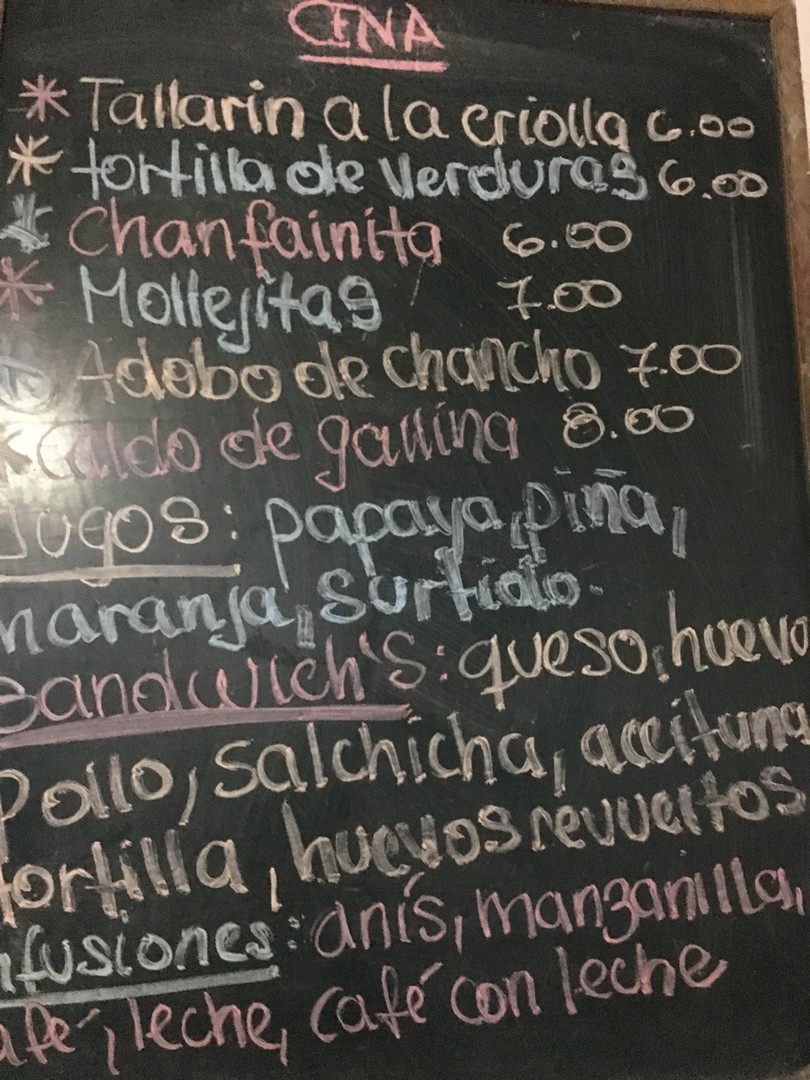 CENA
* Tallarin a la criolla 6.00
* tortilla de verduras 6.00
* Chanfainita 6.00
* Mollejitas 7.00
Adobo de chancho 7.00
* Caldo de gallina 8.00
Jugos: papaya, piña,
naranja, surtido.
Sandwich's: queso, huevo
Pollo, salchicha, aceituna
tortilla, huevos revueltos
nfusiones: anís, manzanilla,
afé, leche, café con leche